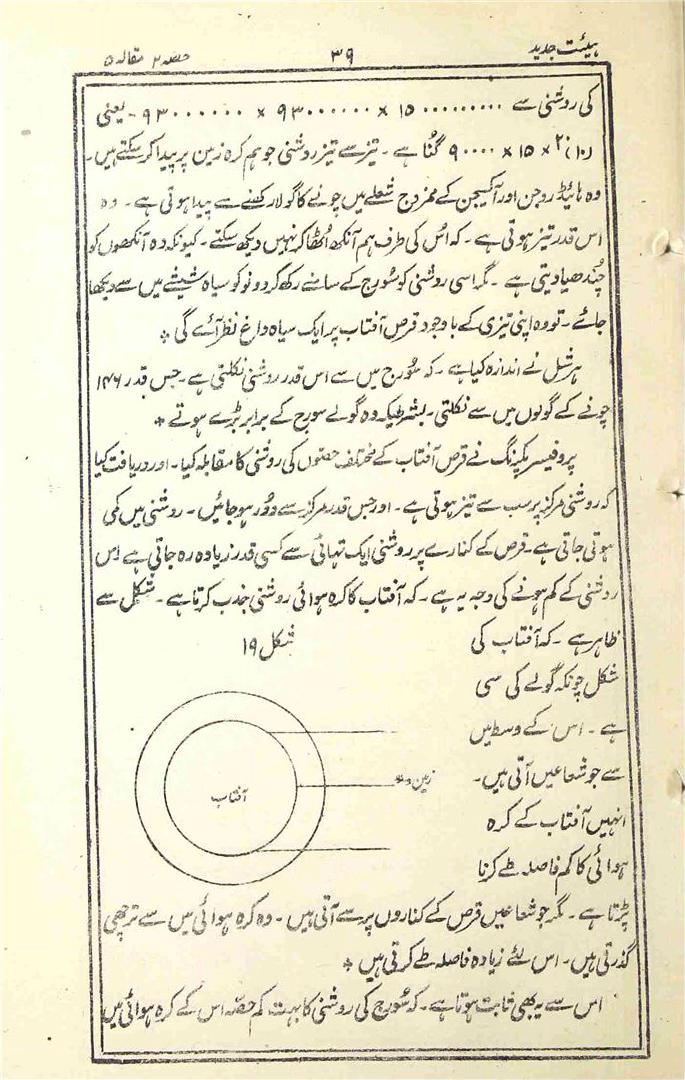 ہیئت جدید ۳۹ حصہ ۲ مقالہ ۵
کی روشنی سے ۱۵۰۰۰۰۰۰۰۰۰ × ۹۳۰۰۰۰۰۰ × ۹۳۰۰۰۰۰۰ - یعنی
(۱۰)۲۰ × ۱۵ × ۹۰۰۰۰ گُنا ہے ۔ تیز سے تیز روشنی جو ہم کرہ زمین پر پیدا کر سکتے ہیں ۔
وہ ہائیڈروجن اور آکسیجن کے ممزوج شعلے میں چونے کا گولا رکھنے سے پیدا ہوتی ہے ۔ وہ
اس قدر تیز ہوتی ہے ۔ کہ اُس کی طرف ہم آنکھ اُٹھا کر نہیں دیکھ سکتے ۔ کیونکہ وہ آنکھوں کو
چُندھیا دیتی ہے ۔ مگر اسی روشنی کو سُورج کے سامنے رکھ کر دونو کو سیاہ شیشے میں سے دیکھا
جائے ۔ تو وہ اپنی تیزی کے باوجود قرص آفتاب پر ایک سیاہ داغ نظر آئے گی *
ہرشل نے اندازہ کیا ہے ۔ کہ سُورج میں سے اس قدر روشنی نکلتی ہے ۔ جس قدر ۱۴۶
چونے کے گولوں میں سے نکلتی ۔ بشرطیکہ وہ گولے سورج کے برابر بڑے ہوتے *
پروفیسر پکرنگ نے قرص آفتاب کے مختلف حصّوں کی روشنی کا مقابلہ کیا ۔ اور دریافت کیا
کہ روشنی مرکز پر سب سے تیز ہوتی ہے ۔ اور جس قدر مرکز سے دُور ہو جائیں ۔ روشنی میں کمی
ہوتی جاتی ہے ۔ قرص کے کنارے پر روشنی ایک تہائی سے کسی قدر زیادہ رہ جاتی ہے اس
روشنی کے کم ہونے کی وجہ یہ ہے ۔ کہ آفتاب کا کرہ ہوائی روشنی جذب کرتا ہے ۔ شکل سے
ظاہر ہے ۔ کہ آفتاب کی
شکل ۱۹
شکل چونکہ گولے کی سی
ہے ۔ اس کے وسط میں
سے جو شعاعیں آتی ہیں ۔
زمین
آفتاب
انہیں آفتاب کے کرہ
ہوائی کا کم فاصلہ طے کرنا
پڑتا ہے ۔ مگر جو شعاعیں قرص کے کناروں پر سے آتی ہیں ۔ وہ کرہ ہوائی میں سے ترچھی
گذرتی ہیں ۔ اس لئے زیادہ فاصلہ طے کرتی ہیں *
اس سے یہ بھی ثابت ہوتا ہے ۔ کہ سُورج کی روشنی کا بہت کم حصّہ اس کے کرہ ہوائی میں